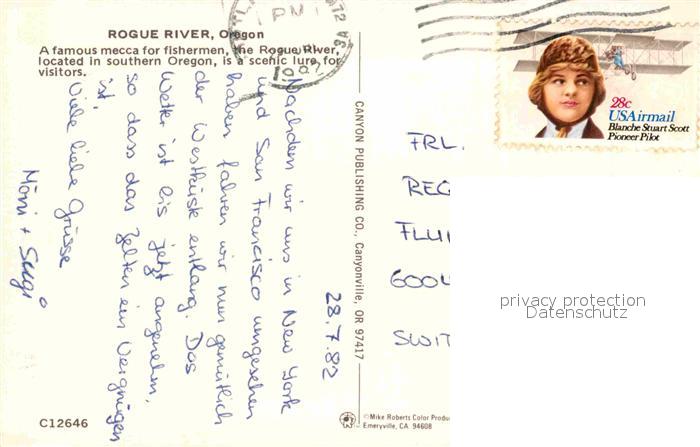 ROGUE RIVER, Oregon
A famous mecca for fishermen, the Rogue River,
located in southern Oregon, is a scenic lure for
visitors.
28.7.82
Nachdem wir uns in New York
und San Francisco umgesehen
haben, fahren wir nun gemütlich
der Westküste entlang. Das
Wetter ist bis jetzt angenehm,
so dass das Zelten ein Vergnügen
ist!
Viele liebe Grüsse
CANYON PUBLISHING CO., Canyonville, OR 97417
28c
USAirmail
Blanche Stuart Scott
Pioneer Pilot
PM
FRL.
REG
FLU
600
SWIT
privacy protection
Datenschutz
C12646
©Mike Roberts Color Produ
Emeryville, CA. 94608